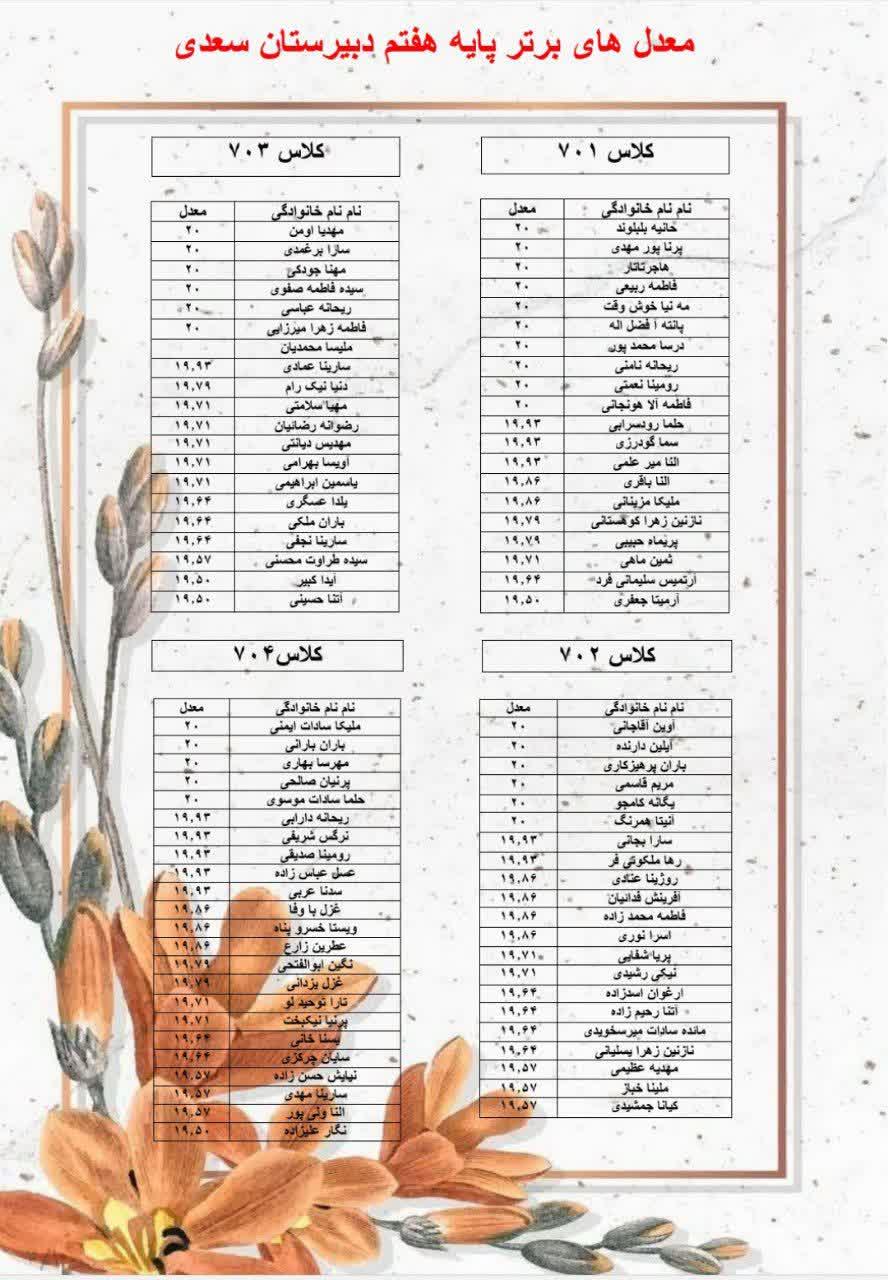 معدل های برتر پایه هفتم دبیرستان سعدی
کلاس ۷۰۱
نام نام خانوادگی معدل
حانیه بلبلوند ۲۰
پرنا پور مهدی ۲۰
هاجرتاتار ۲۰
فاطمه ربیعی ۲۰
مه نیا خوش وقت ۲۰
پانته آ فضل اله ۲۰
درسا محمد پور ۲۰
ریحانه نامنی ۲۰
رومینا نعمتی ۲۰
فاطمه آلا هونجانی ۲۰
حلما رودسرابی ۱۹,۹۳
سما گودرزی ۱۹,۹۳
النا میر علمی ۱۹,۹۳
النا باقری ۱۹,۸۶
ملیکا مزینانی ۱۹,۸۶
نازنین زهرا کوهستانی ۱۹,۷۹
پریماه حبیبی ۱۹,۷۹
ثمین ماهی ۱۹,۷۱
آرتمیس سلیمانی فرد ۱۹,۶۴
آرمیتا جعفری ۱۹,۵۰
کلاس ۷۰۳
نام نام خانوادگی معدل
مهدیا اومن ۲۰
سارا برغمدی ۲۰
مهنا جودکی ۲۰
سیده فاطمه صفوی ۲۰
ریحانه عباسی ۲۰
فاطمه زهرا میرزایی ۲۰
ملیسا محمدیان
سارینا عمادی ۱۹,۹۳
دنیا نیک رام ۱۹,۷۹
مهیا سلامتی ۱۹,۷۱
رضوانه رضائیان ۱۹,۷۱
مهدیس دیانتی ۱۹,۷۱
آویسا بهرامی ۱۹,۷۱
یاسمین ابراهیمی ۱۹,۷۱
یلدا عسگری ۱۹,۶۴
باران ملکی ۱۹,۶۴
سارینا نجفی ۱۹,۶۴
سیده طراوت محسنی ۱۹,۵۷
آیدا کبیر ۱۹,۵۰
آتنا حسینی ۱۹,۵۰
کلاس ۷۰۲
نام نام خانوادگی معدل
آوین آقاجانی ۲۰
آیلین دارنده ۲۰
باران پرهیزکاری ۲۰
مریم قاسمی ۲۰
یگانه کامجو ۲۰
آنیتا همرنگ ۲۰
سارا بجانی ۱۹,۹۳
رها ملکوتی فر ۱۹,۹۳
روژینا عنادی ۱۹,۸۶
آفرینش فدائیان ۱۹,۸۶
فاطمه محمد زاده ۱۹,۸۶
اسرا نوری ۱۹,۸۶
پریا شفایی ۱۹,۷۱
نیکی رشیدی ۱۹,۷۱
ارغوان اسدزاده ۱۹,۶۴
آتنا رحیم زاده ۱۹,۶۴
مائده سادات میرسخویدی ۱۹,۶۴
نازنین زهرا یسلیانی ۱۹,۶۴
مهدیه عظیمی ۱۹,۵۷
ملینا خباز ۱۹,۵۷
کیانا جمشیدی ۱۹,۵۷
کلاس ۷۰۴
نام نام خانوادگی معدل
ملیکا سادات ایمنی ۲۰
باران بارانی ۲۰
مهرسا بهاری ۲۰
پرنیان صالحی ۲۰
حلما سادات موسوی ۲۰
ریحانه دارابی ۱۹,۹۳
نرگس شریفی ۱۹,۹۳
رومینا صدیقی ۱۹,۹۳
عسل عباس زاده ۱۹,۹۳
سدنا عربی ۱۹,۹۳
غزل با وفا ۱۹,۸۶
ویستا خسرو پناه ۱۹,۸۶
عطرین زارع ۱۹,۸۶
نگین ابوالفتحی ۱۹,۷۹
غزل یزدانی ۱۹,۷۹
تارا توحید لو ۱۹,۷۱
پرنیا نیکبخت ۱۹,۷۱
یسنا خانی ۱۹,۶۴
سایان چرکزی ۱۹,۶۴
نیایش حسن زاده ۱۹,۵۷
سارینا مهدی ۱۹,۵۷
النا ولی پور ۱۹,۵۷
نگار علیزاده ۱۹,۵۰